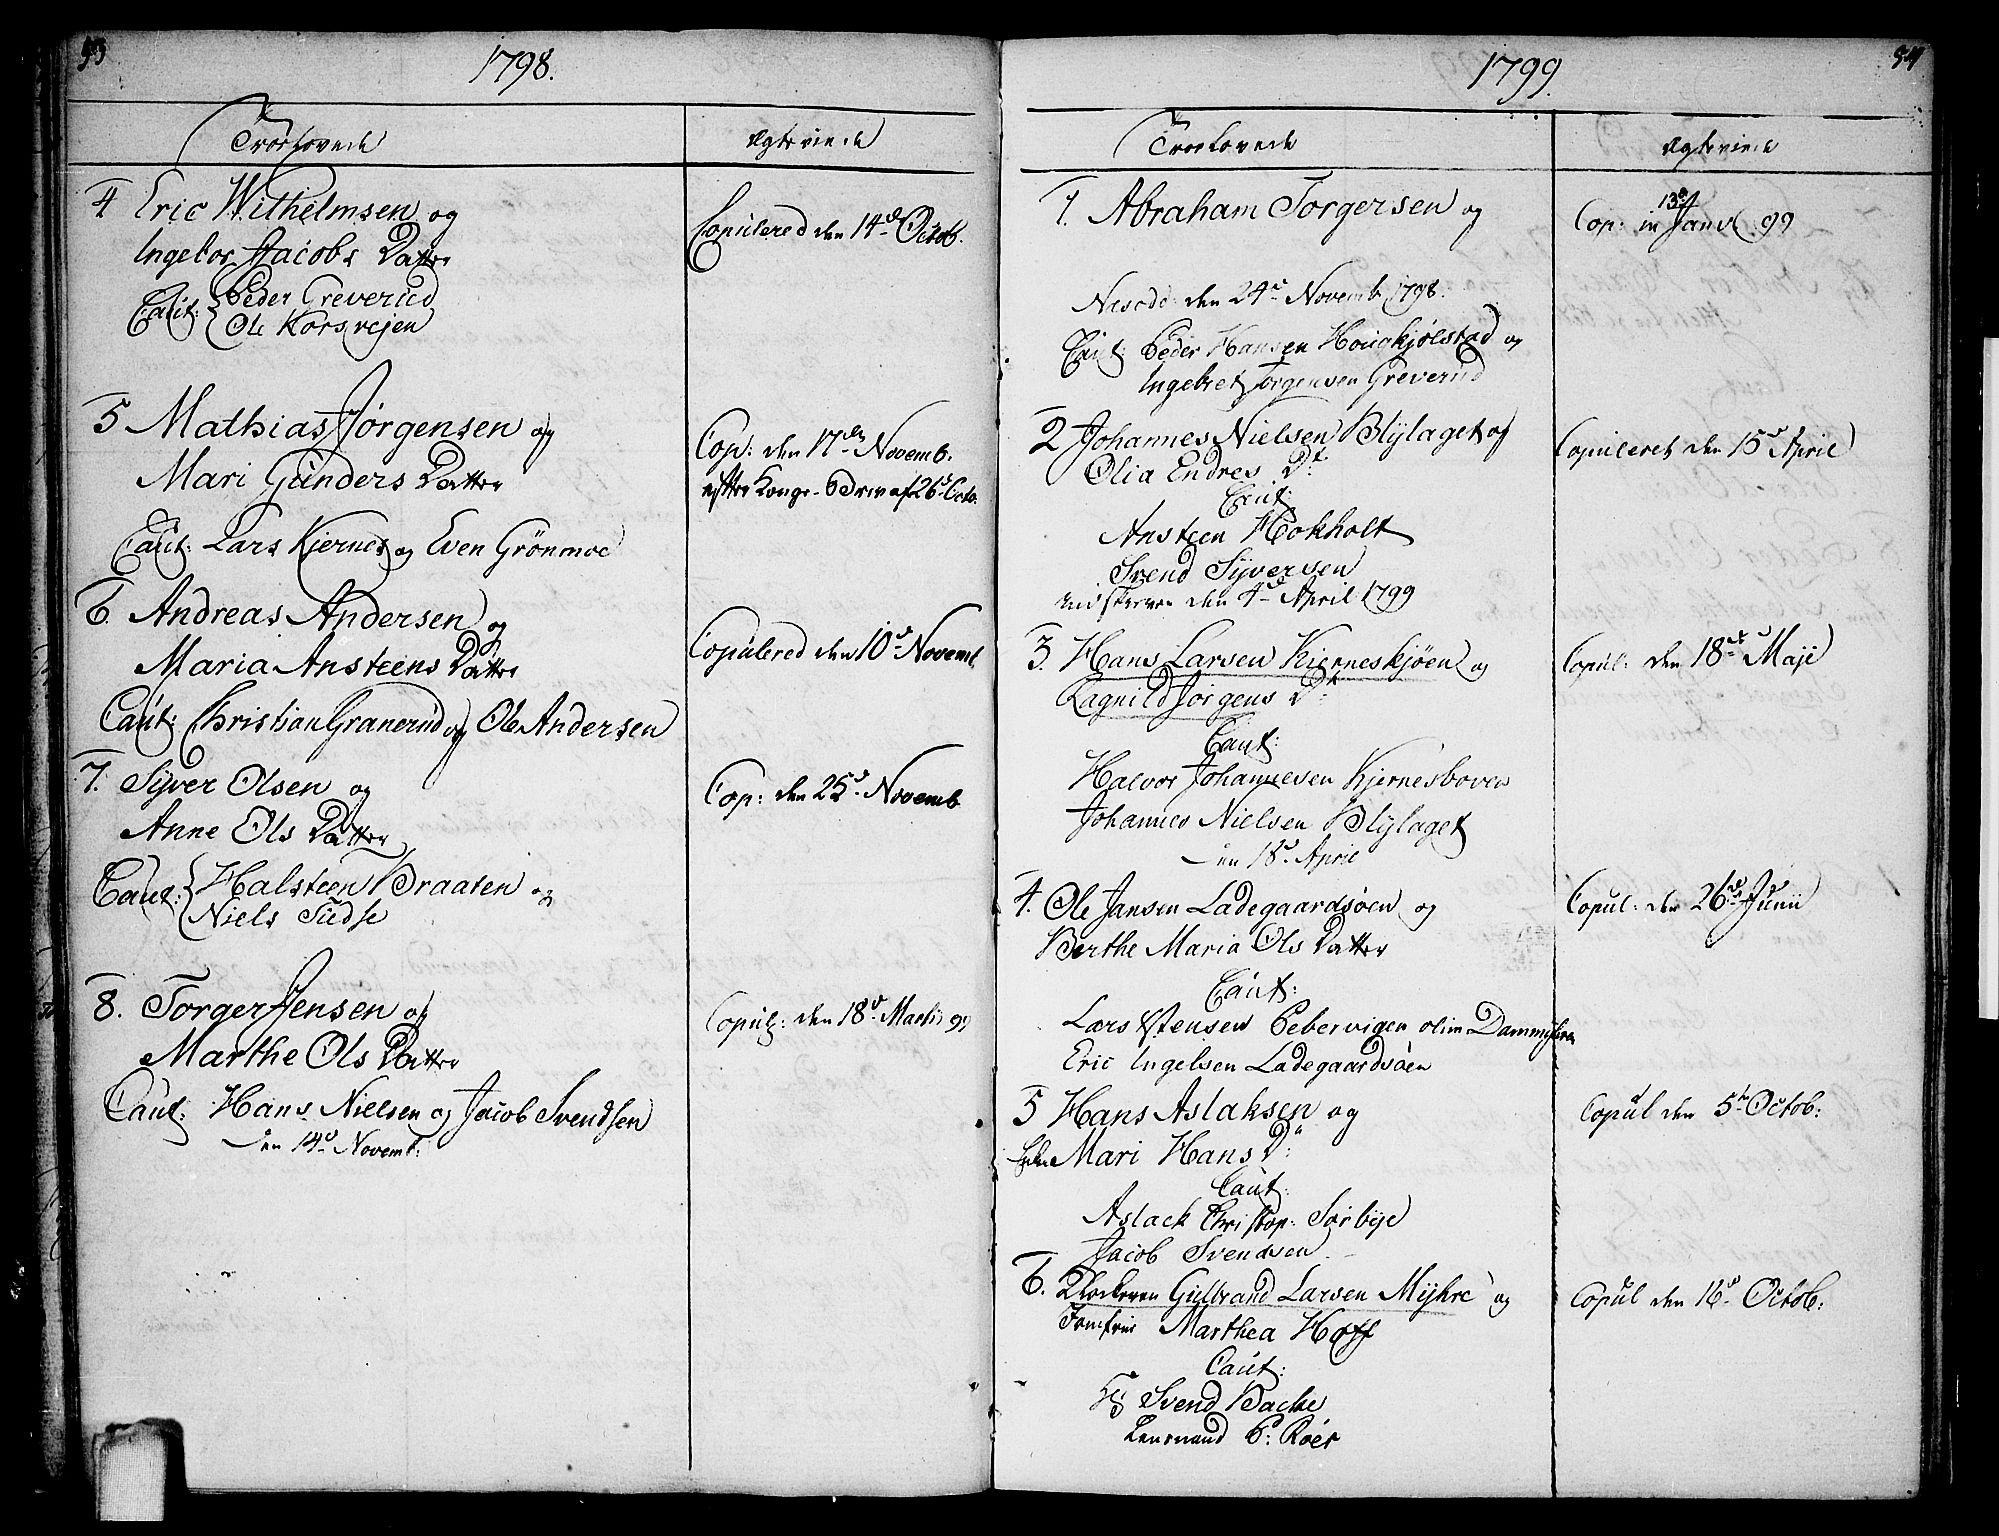 53
1798.
Troelovede
Ægteviede
4 Eric Wilhelmsen og
Ingebor Jacobs Datter
Caut: Peder Greverud
Ole Korsvejen
Copulered den 14d Octob.
5 Mathias Jörgensen og
Mari Gunders Datter
Caut: Lars Kjernes og Even Grönmoe
Cop: den 17de Novemb:
efter Konge-Brev af 26d Octo:
6. Andreas Andersen og
Maria Ansteens Datter
Caut: Christian Granerud og Ole Andersen
Copulered den 10d Novemb
7. Syver Olsen og
Anne Ols Datter
Caut: Halsteen Braaten og
Niels Tudse
Cop: den 25d Novemb
8. Torger Jensen og
Marthe Ols Datter
Caut: Hans Nielsen og Jacob Svendsen
den 14d Novemb:
Copul: den 18d Martii 99
54
1799
Troelovede
Ægteviede
1. Abraham Torgersen og
Nesodd: den 24d Novemb 1798.
Caut: Peder Hansen Hougkjølstad og
Ingebret Jorgensen Greverud
Cop: 13d Janv 99
2 Johannes Nielsen Blylaget og
Olia Endres Dt
Caut:
Ansteen Hokholt
Svend Syversen
indskreven den 4d April 1799
Copuleret den 15d April
3. Hans Larsen Kierneskjöen og
Ragnild Jörgens Dt
Caut:
Halvor Johannesen Kjernesboven
Johannes Nielsen Blylaget
den 18d April
Copul: den 18de Maji
4. Ole Jansen Ladegaardsöen og
Berthe Maria Ols Datter
Caut:
Lars Stensen Pebervigen olim Dammyhra
Eric Ingelsen Ladegaardsöen
Copul: den 26de Junii
5 Hans Aslaksen og
Mari Hans D:
Caut:
Aslack Christop: Sørbye
Jacob Svendsen
Copul den 5te Octob:
6. Klockeren Gulbrand Larsen Myhre og
Jomfrue Marthea Hoff
Caut:
Hr Svend Bache
Lensmand P: Röer
Copul den 16d Octob: